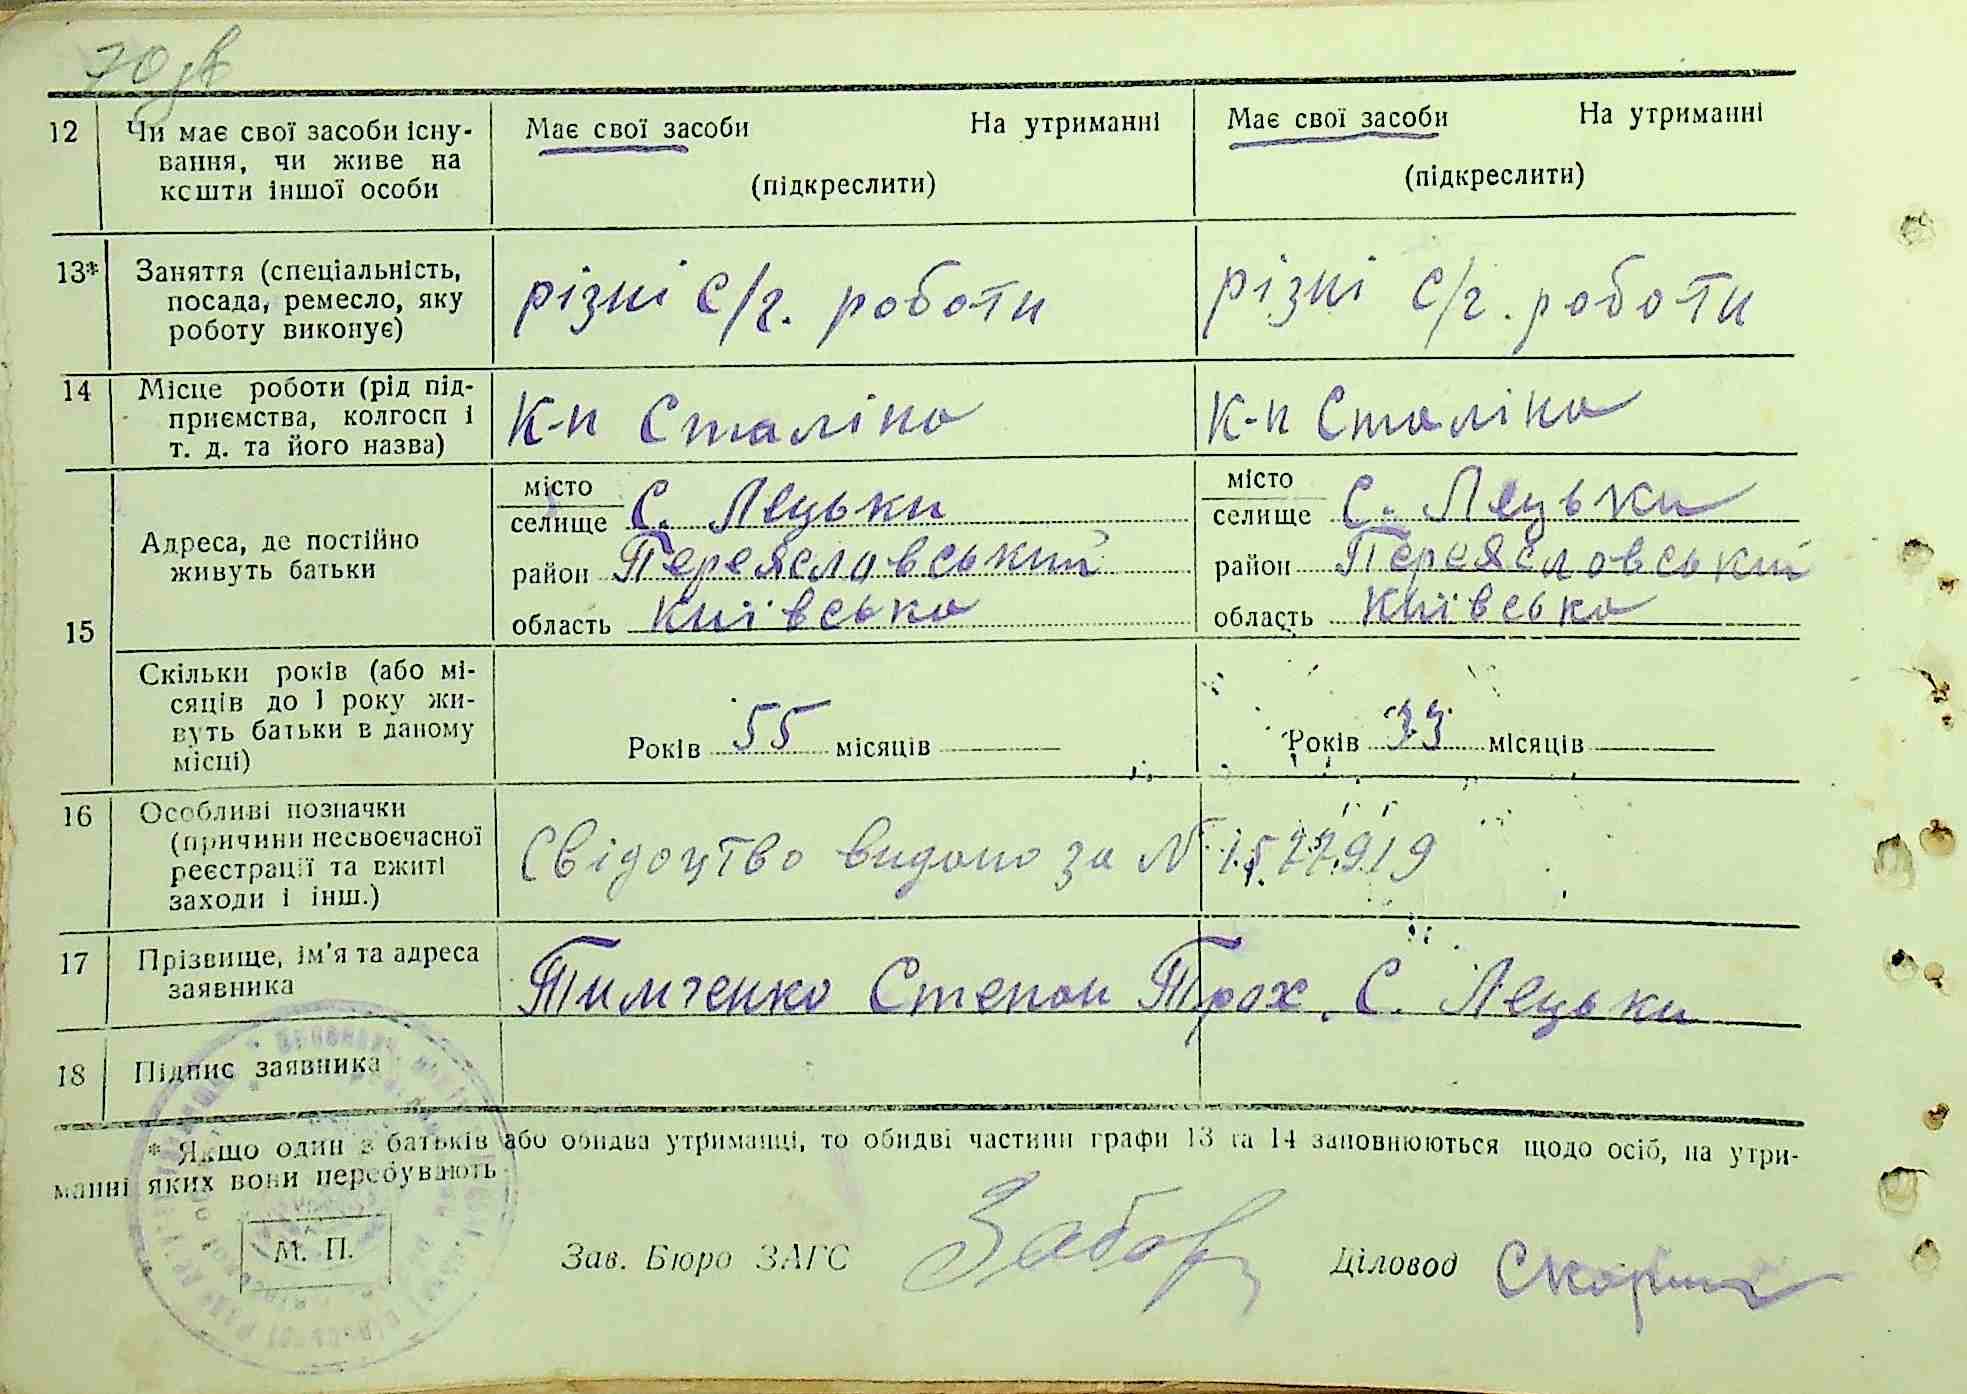 70 зв
12 Чи має свої засоби існу-
вання, чи живе на
кошти іншої особи
Має свої засоби На утриманні
(підкреслити)
Має свої засоби На утриманні
(підкреслити)
13* Заняття (спеціальність,
посада, ремесло, яку
роботу виконує)
різні с/г. роботи
різні с/г. роботи
14 Місце роботи (рід під-
приємства, колгосп і
т. д. та його назва)
К-п Сталіна
К-п Сталіна
15
Адреса, де постійно
живуть батьки
місто
селище С. Лецьки
район Переяславський
область Київська
місто
селище С. Лецьки
район Переяславський
область Київська
Скільки років (або мі-
сяців до 1 року жи-
вуть батьки в даному
місці)
Років 55 місяців
Років 33 місяців
16 Особливі позначки
(причини несвоєчасної
реєстрації та вжиті
заходи і інш.)
Свідоцтво видано за № 1577919
17 Прізвище, ім'я та адреса
заявника
Тимченко Степан Трох. С. Лецьки
18 Підпис заявника
* Якщо один з батьків або обидва утриманці, то обидві частини графи 13 та 14 заповнюються щодо осіб, на утри-
манні яких вони перебувають
М. П.
Зав. Бюро ЗАГС
Діловод